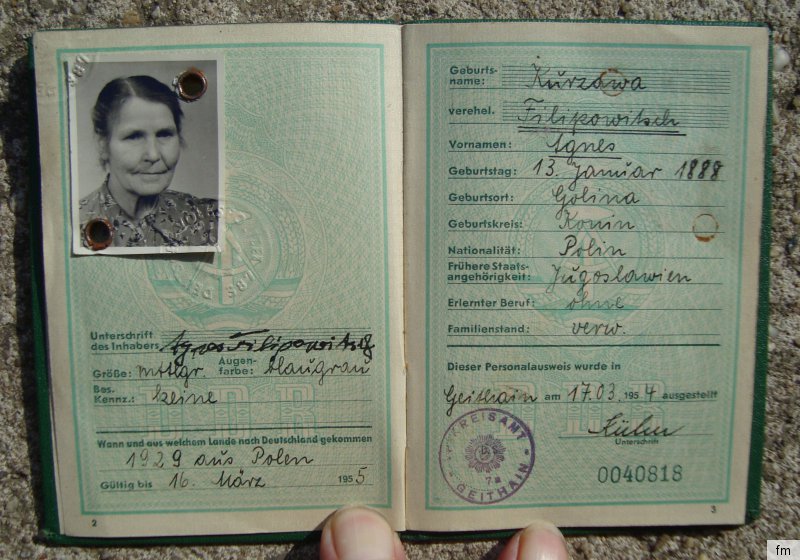 Unterschrift
des Inhabers Agnes Filipowitsch
Größe: mttlgr. Augen-
farbe: blaugrau
Bes.
Kennz.: keine
Wann und aus welchem Lande nach Deutschland gekommen
1929 aus Polen
Gültig bis 16. März 1955
2
Geburts-
name: Kurzawa
verehel. Filipowitsch
Vornamen: Agnes
Geburtstag: 13. Januar 1888
Geburtsort: Golina
Geburtskreis: Konin
Nationalität: Polin
Frühere Staats-
angehörigkeit: Jugoslawien
Erlernter Beruf: ohne
Familienstand: verw.
Dieser Personalausweis wurde in
Geithain am 17.03.1954 ausgestellt
Kühn
Unterschrift
KREISAMT
7a
GEITHAIN
0040818
3
fm